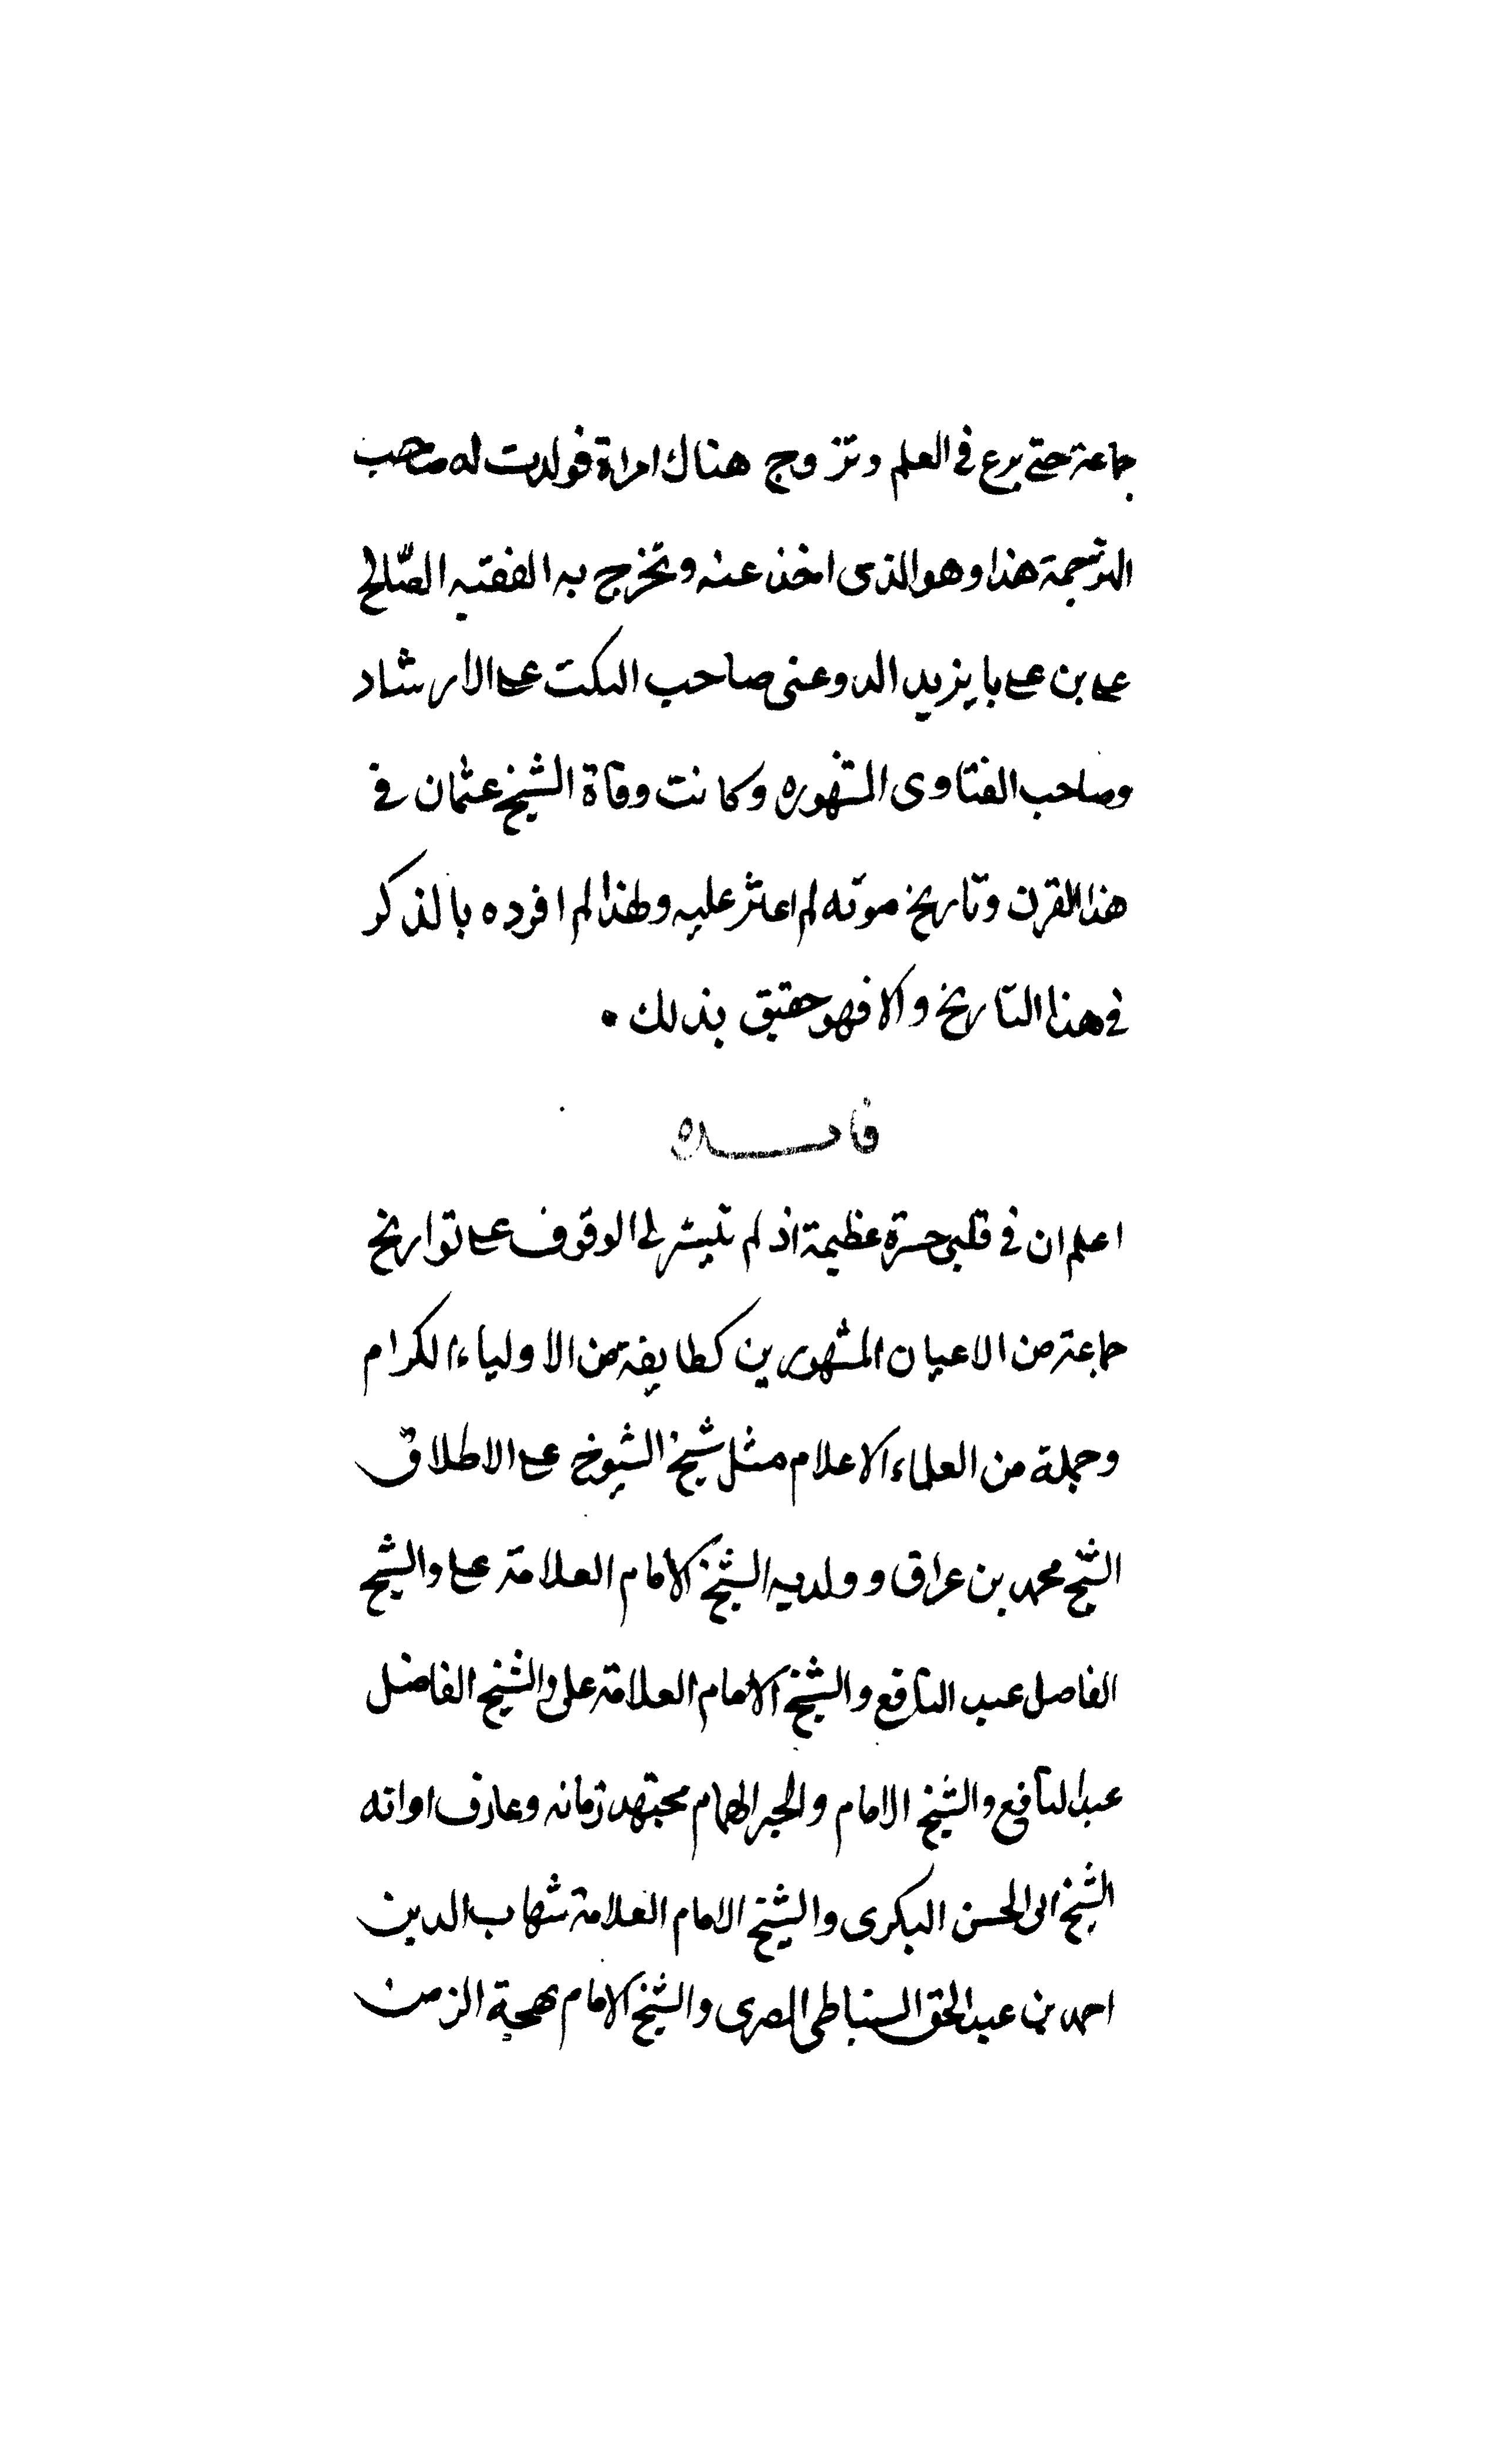 جماعة حتى برع في العلم وتزوج هناك امراة فولدت له صاحب
الترجمة هذا وهو الذى اخذ عنه وتخرج به الفقيه الصّالح
على بن على بايزيد الدوعنى صاحب النكت على الارشاد
وصاحب الفتاوى المشهوره وكانت وفاة الشيخ عثمان في
هذا القرن وتاريخ موته لم اعثر عليه ولهذا لم افرده بالذكر
في هذا التاريخ والا فهو حقيق بذلك .
فايده
اعلم ان في قلبي حسرة عظيمة اذ لم تتيسر لي الوقوف على تواريخ
جماعة من الاعيان المشهورين كطايفة من الاولياء الكرام
وجملة من العلماء الاعلام مثل شيخ الشيوخ على الاطلاق
الشيخ محمد بن عراق وولديه الشيخ الامام العلامة على والشيخ
الفاضل عبد النافع والشيخ الامام العلامة على والشيخ الفاضل
عبد النافع والشيخ الامام والحبر الهمام مجتهد زمانه وعارف اوانه
الشيخ ابى الحسن البكرى والشيخ الامام العلامة شهاب الدين
احمد بن عبد الحق السنباطى المصرى والشيخ الامام بهجة الزمن